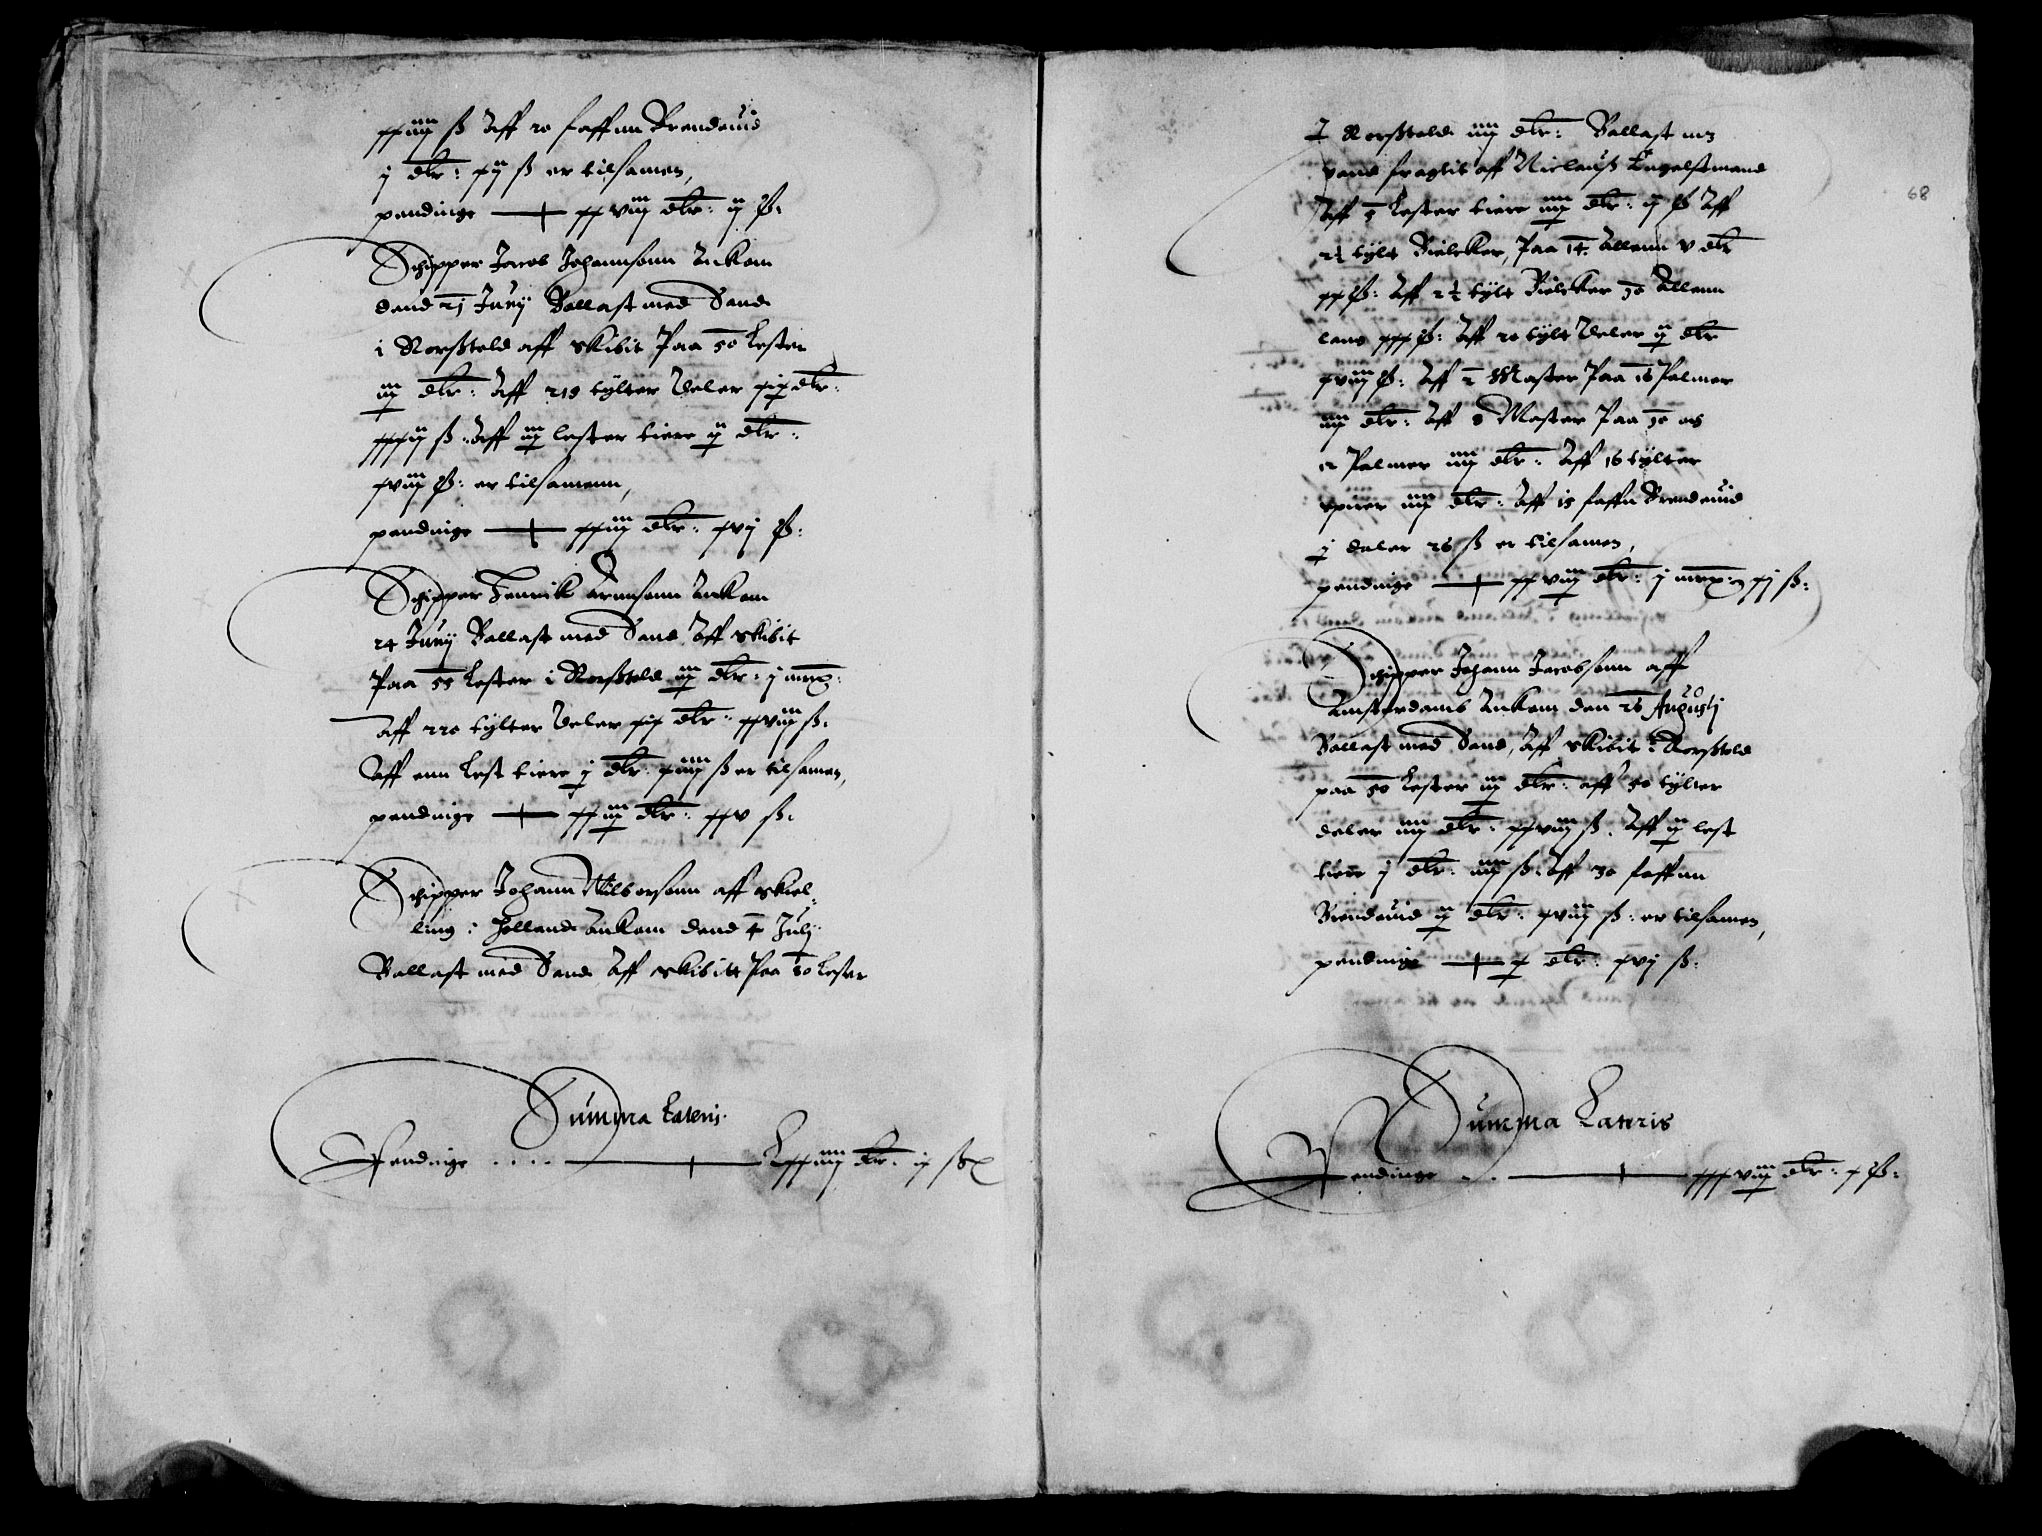 xxiiij ß Aff 20 faffnn Brendeuid
j dlr: xij ß er tilsamen,
pendinge —— xxviij dlr: ij ß:
Schipper Jacob Johannsonn Ankom
dend 21 Junij Ballast med Sand
i Norßtold aff skibit Paa 50 Lester
iij dlr: Aff 219 tylter Deler xix dlr:
xxxij ß: Aff iij lester tiere ij dlr:
xviij ß: er tilsamenn,
pendinge —— xxiiij dlr: xvj ß:
Schipper Henrik Arnnsonn Ankom
24 Junij Ballast med Sand Aff skibit
Paa 55 Lester i Norßtold iij dlr: j mrx:
Aff 220 tylter Deler xix dlr: xxviij ß:
Aff enn Lest tiere j dlr: xiiij ß er tilsamen,
pendinge —— xxiiij dlr: xxv ß:
Schipper Johann Wilborsonn aff skiel-
ling i Hollandt Ankom dend 4 Julij
Ballast med Sand Aff skibitt Paa 80 Lester
Summa Lateris.
Pendinge .... —— Lxxiiij dlr: ij ß
68
I Norßtold iiij dlr: Ballast
Vand fragtit aff Niclauß Engelstmand
Aff 5 Lester tiere iiij dlr: ij ß Aff
2½ tylt Bielcker, Paa 14 Allenn v dlr
xx ß: Aff 2½ tylt Bielcker 10 Allenn
lang xxx ß: Aff 20 tylt Deler ij dlr
xviij ß: Aff 2 Master Paa 16 Palmer
iiij dlr: Aff 8 Master Paa 10 og
12 Palmer iiij dlr: Aff 16 tylter
spirer iiij dlr: Aff 15 faffn Brendeuid
j daler 26 ß er tilsamen,
pendinge —— xxviij dlr: j mrx: xj ß:
Schipper Johann Jacobsonn aff
Amsterdamb Ankom den 26 Augustj
Ballast med Sand, Aff skibit i Norßtold
paa 50 Lester iij dlr: aff 50 tylter
deler iiij dlr: xxviij ß. Aff ij lest
tiere j dlr: iiij ß: Aff 30 faffnn
Brendeuid ij dlr: xviij ß: er tilsamen,
pendinge —— x dlr: xvj ß:
Summa Lateris
Pendinge .. —— xxxviij dlr: x ß: